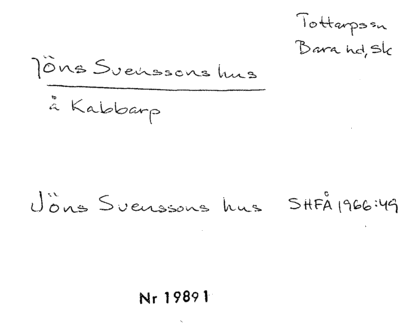 Tottarpssn
Bara hd, Sk
Jöns Svenssons hus
å Kabbarp
Jöns Svenssons hus SHFÅ 1966:49
Nr 19891